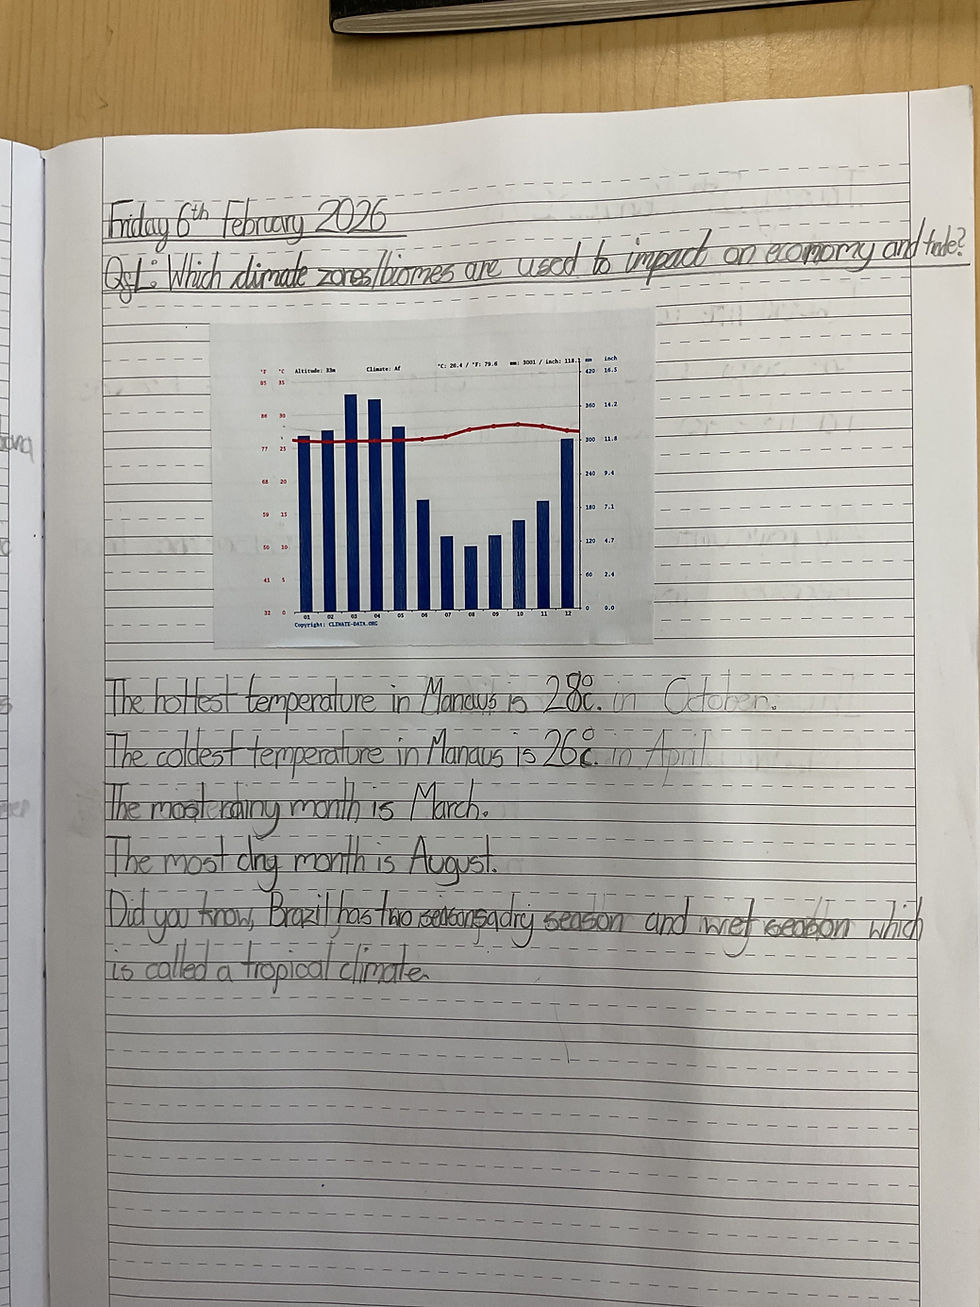 Friday 6th February 2026
QsL: Which climate zones/biomes are used to impact on economy and trade?
°F °C Altitude: 33m Climate: Af °C: 26.4 / °F: 79.6 mm: 3001 / inch: 118.1 mm inch
95 35 420 16.5
86 30 360 14.2
77 25 300 11.8
68 20 240 9.4
59 15 180 7.1
50 10 120 4.7
41 5 60 2.4
32 0 0 0.0
01 02 03 04 05 06 07 08 09 10 11 12
Copyright: CLIMATE-DATA.ORG
The hottest temperature in Manaus is 28°c. in October.
The coldest temperature in Manaus is 26°c. in April
The most rainy month is March.
The most dry month is August.
Did you know, Brazil has two seasons dry season and wet season which
is called a tropical climate.